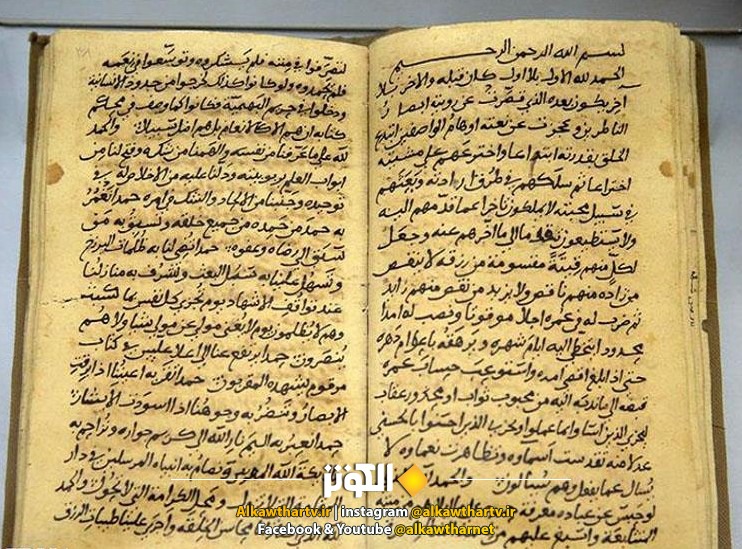 بسم الله الرحمن الرحيم
الحمد لله الاول بلا اول كان قبله والاخر بلا
آخر يكون بعده الذي قصرت عن رويته ابصار
الناظرين وعجزت عن نعته اوهام الواصفين ابتدع
الخلق بقدرته ابتداعا واخترعهم على مشيته
اختراعا ثم سلك بهم طريق ارادته وبعثهم
في سبيل محبته لا يملكون تاخيرا عما قدمهم اليه
ولا يستطيعون تقدما الى ما اخرهم عنه وجعل
لكل منهم قيتة مقسومة من رزقه لا ينقص
من زاده منهم ناقص ولا يزيد من نقص منهم زايد
ثم ضرب له في عمره اجلا موقوتا ونصب له امدا
محدودا يتخطى اليه بايام ويرهقه باعوام دهره
حتى اذا بلغ اقصى امده واستوعب حساب عمره
قبضه الى ما ندبه اليه من محبوب ثوابه او محذور عقابه
ليجزي الذين اساوا بما عملوا ويجزي الذين احسنوا بالحسنى
عدلا منه تقدست اسماوه وتظاهرت نعماوه لا
يسال عما يفعل وهم يسالون والحمد
لو حبس عن عباده معرفة
المتتابعة واسبغ عليهم من
لتصرفوا في مننه فلم يشكروه وتوسعوا في نعمه
فلم يحمدوه ولو كانوا كذلك لخرجوا من حدود الانسانية
ودخلوا في حريم البهيمية فكانوا كما وصف في محكم
كتابه ان هم الا كالانعام بل هم اضل سبيلا والحمد
لله على ما عرفنا من نفسه والهمنا من شكره وفتح لنا من
ابواب العلم بربوبيته ودلنا عليه من الاخلاص له في
توحيده وجنبنا من الالحاد والشك في امره حمدا نعمر
به حمد من حمده من جميع خلقه ونسبق به من
سبق الى رضاه وعفوه حمدا يضئ لنا به ظلمات البرزخ
ويسهل علينا به سبيل المبعث ويشرف به منازلنا
عند مواقف الاشهاد يوم تجزى كل نفس بما كسبت
وهم لا يظلمون يوم لا يغني مولى عن مولى شيئا ولا هم
ينصرون حمدا يرتفع منا الى اعلا عليين في كتاب
مرقوم يشهده المقربون حمدا تقر به اعيننا اذا برقت
الابصار وتبيض به وجوهنا اذا اسودت الابشار
حمدا نعتق به من اليم نار الله الى كريم جوار الله حمدا نزاحم به
ملائكة الله المقربين ونضام به انبياءه المرسلين في دار
محل الكرامة التي لا تحول والحمد
محاسن الخلق واجرى علينا طيبات الرزق
الكوثر
Alkawthartv.ir | instagram @alkawthartv.ir
Facebook & Youtube @alkawtharnet